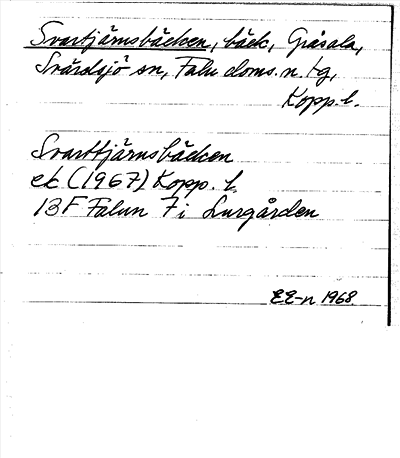 Svartjärnsbäcken, bäck, Gråsala,
Svärdsjö sn, Falu doms. n. tg,
Kopp. l.
Svarttjärnsbäcken
ek (1967) Kopp. l.
13F Falun 7i Lurgården
EE-n 1968.